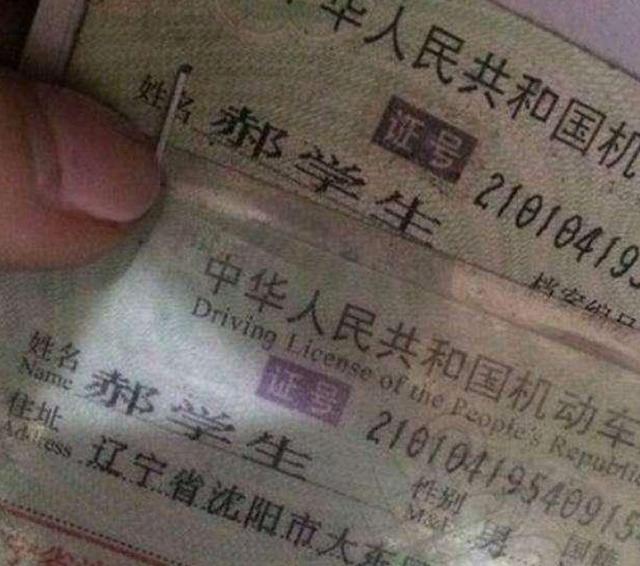 中华人民共和国机
证号 210104195
姓名 郝学生
档案编号
中华人民共和国机动车
Driving License of the People's Republi
证号 21010419540915
姓名 郝学生
Name
性别 男 国籍
M&F
住址 辽宁省沈阳市大东
Address